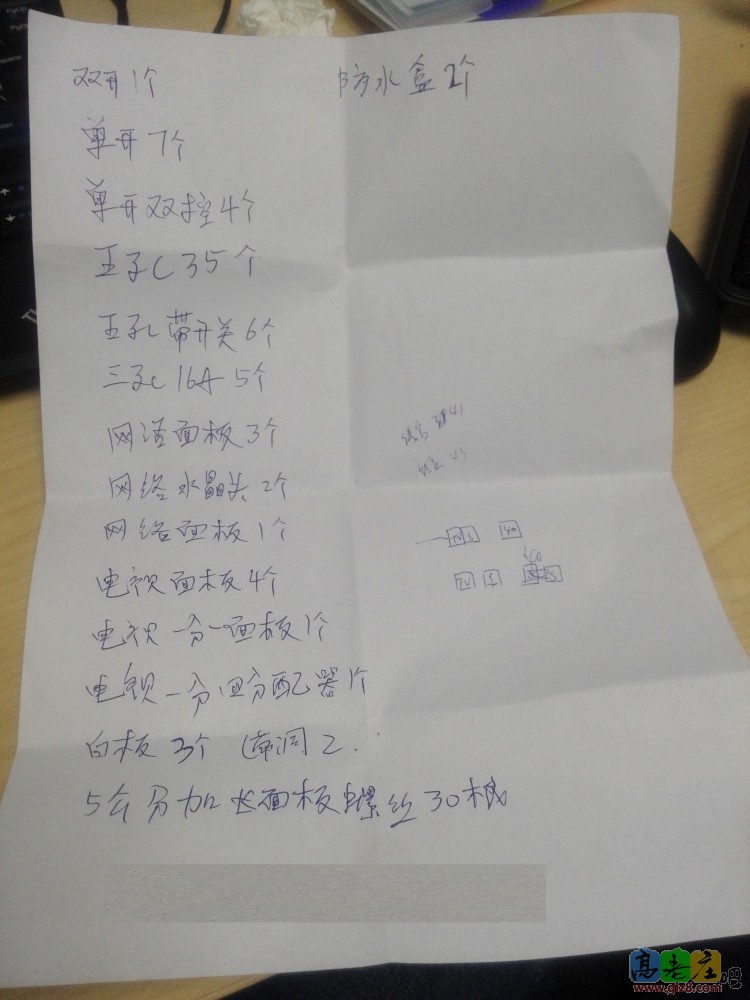 双开1个
防水盒2个
单开7个
单开双控4个
五孔35个
五孔带开关6个
三孔16A 5个
网络面板3个
网络水晶头2个
网络面板1个
电视面板4个
电视一分一面板1个
电视一分四分配器1个
白板3个 (带洞2.
5公分加长面板螺丝30根
TV
TV
高老庄
吧
www.glz8.com